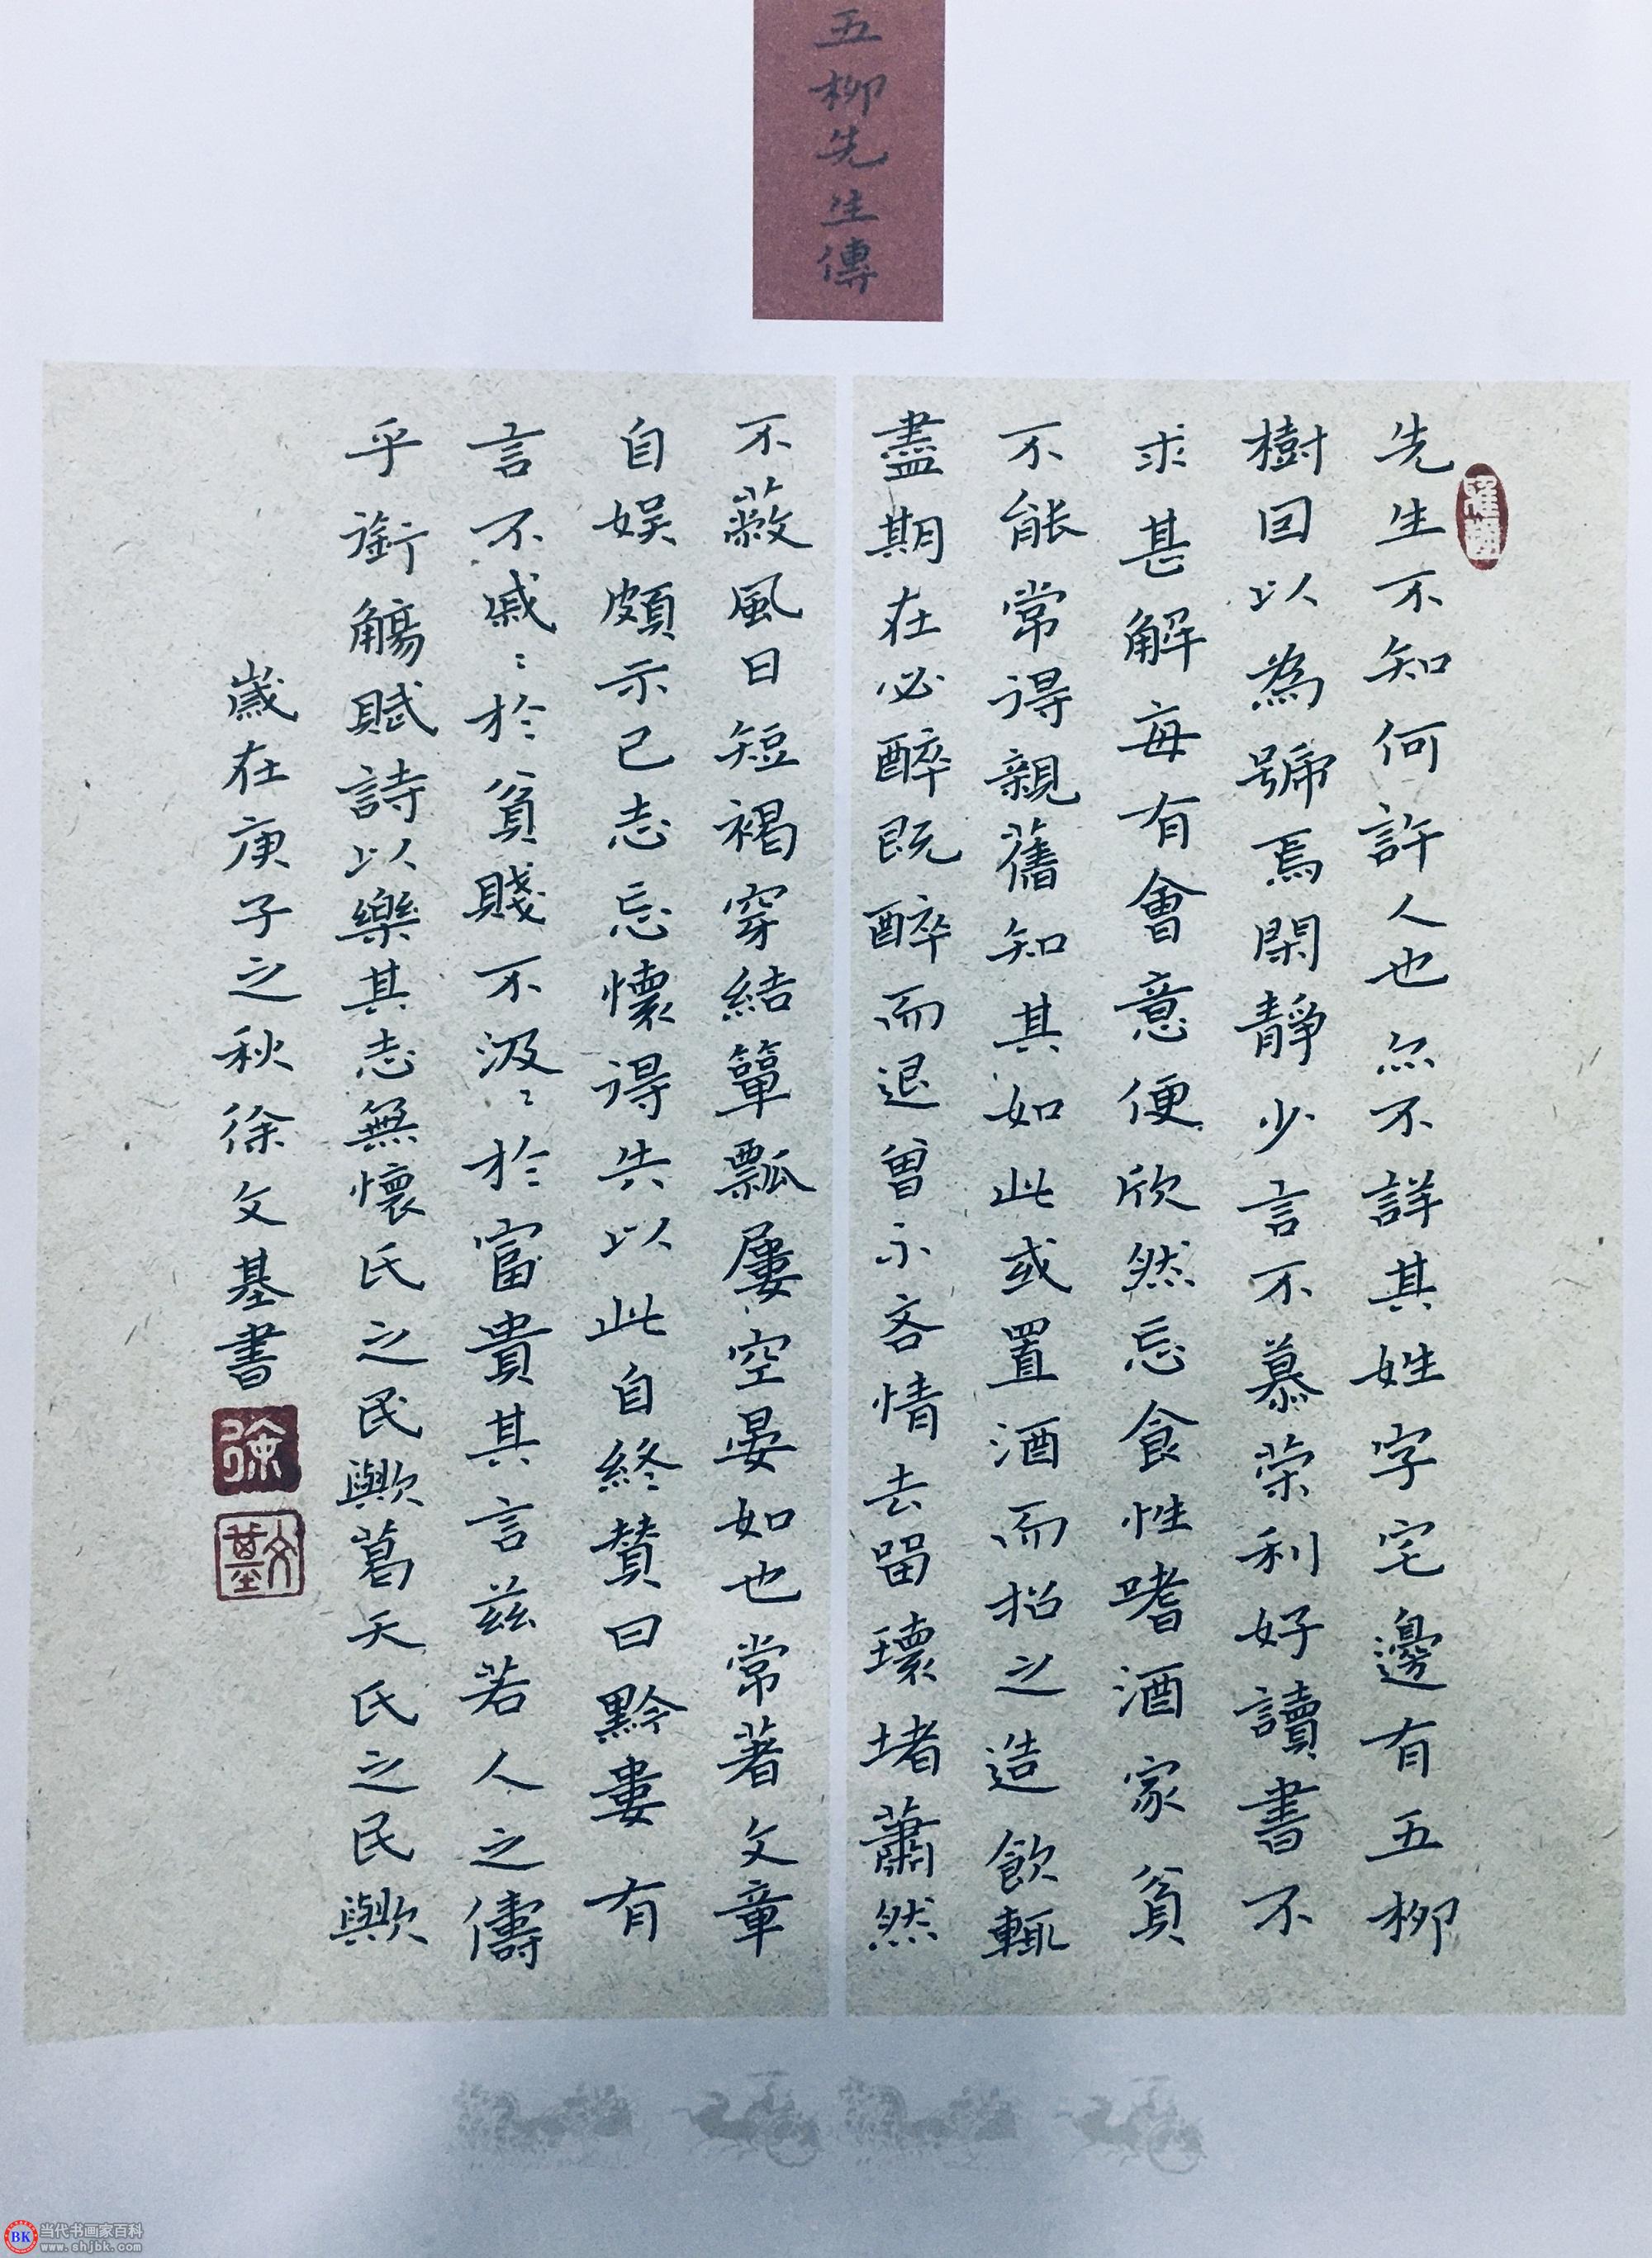 五柳先生傳
先生不知何許人也尒不詳其姓字宅邊有五柳
樹回以為號焉閑静少言不慕荣利好讀書不
求甚解每有會意便欣然忘食性嗜酒家貧
不能常得親舊知其如此或置酒而招之造飲輒
盡期在必醉既醉而退曾不吝情去留環堵蕭然
不蔽風日短褐穿結簞瓢屢空晏如也常著文章
自娱頗示己志忘懷得失以此自終贊曰黔婁有
言不戚〻於貧賤不汲〻於富貴其言兹若人之儔
乎銜觴賦詩以樂其志無懷氏之民歟葛天氏之民歟
歲在庚子之秋徐文基書
徐
文基
当代书画家百科
www.shjbk.com
BK